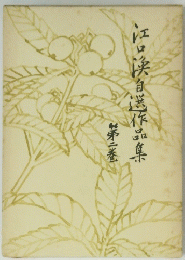 江口渙自選作品集
第二巻